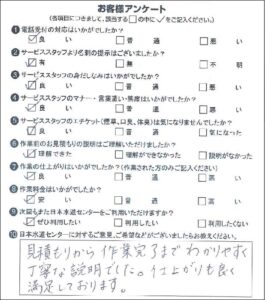 お客様アンケート
(各項目につきまして、該当する□の中に✓をご記入ください。)
❶電話受付の対応はいかがでしたか?
☑良い □普通 □悪い
❷サービススタッフより名刺の提示はございましたか?
☑有 □無 □不明
❸サービススタッフの身だしなみはいかがでしたか?
☑良い □普通 □悪い
❹サービススタッフのマナー・言葉遣い・態度はいかがでしたか?
☑良い □普通 □悪い
❺サービススタッフのエチケット(煙草、口臭、体臭)は気になりませんでしたか?
☑良い □普通 □気になった
❻作業前のお見積りの説明はご理解いただけましたか?
☑理解できた □理解ができなかった □説明がなかった
❼作業の仕上がりはいかがでしたか?(作業された方のみご記入ください)
☑良い □普通 □悪い
❽作業料金はいかがでしたか?
☑安い □普通 □高い
❾次回もまた日本水道センターをご利用いただけますか?
☑ぜひ利用したい □利用したい □利用したくない
❿日本水道センターに対するご意見、ご希望などがございましたらお教えください。
見積もりから作業完了までわかりやすく
丁寧な説明でした。仕上がりも良く
満足しております。